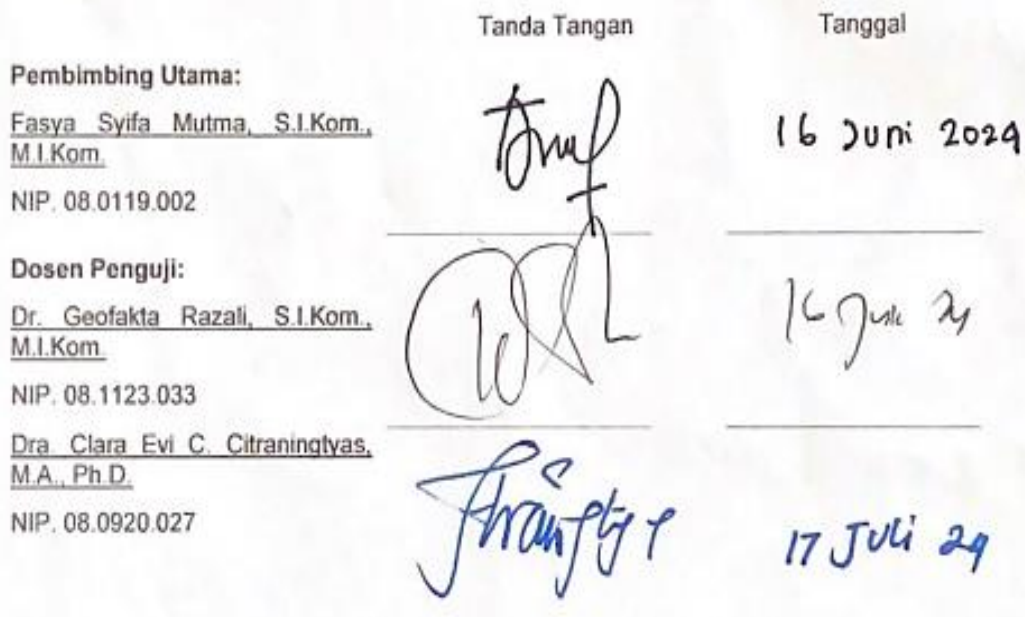 Tanda Tangan Tanggal
Pembimbing Utama:
Fasya Syifa Mutma, S.I.Kom.,
M.I.Kom.
16 Juni 2024
NIP. 08.0119.002
Dosen Penguji:
Dr. Geofakta Razali, S.I.Kom.,
M.I.Kom
16 24
NIP. 08.1123.033
Dra Clara Evi C. Citraningtyas,
M.A., Ph.D.
NIP. 08.0920.027
17 Juli 24